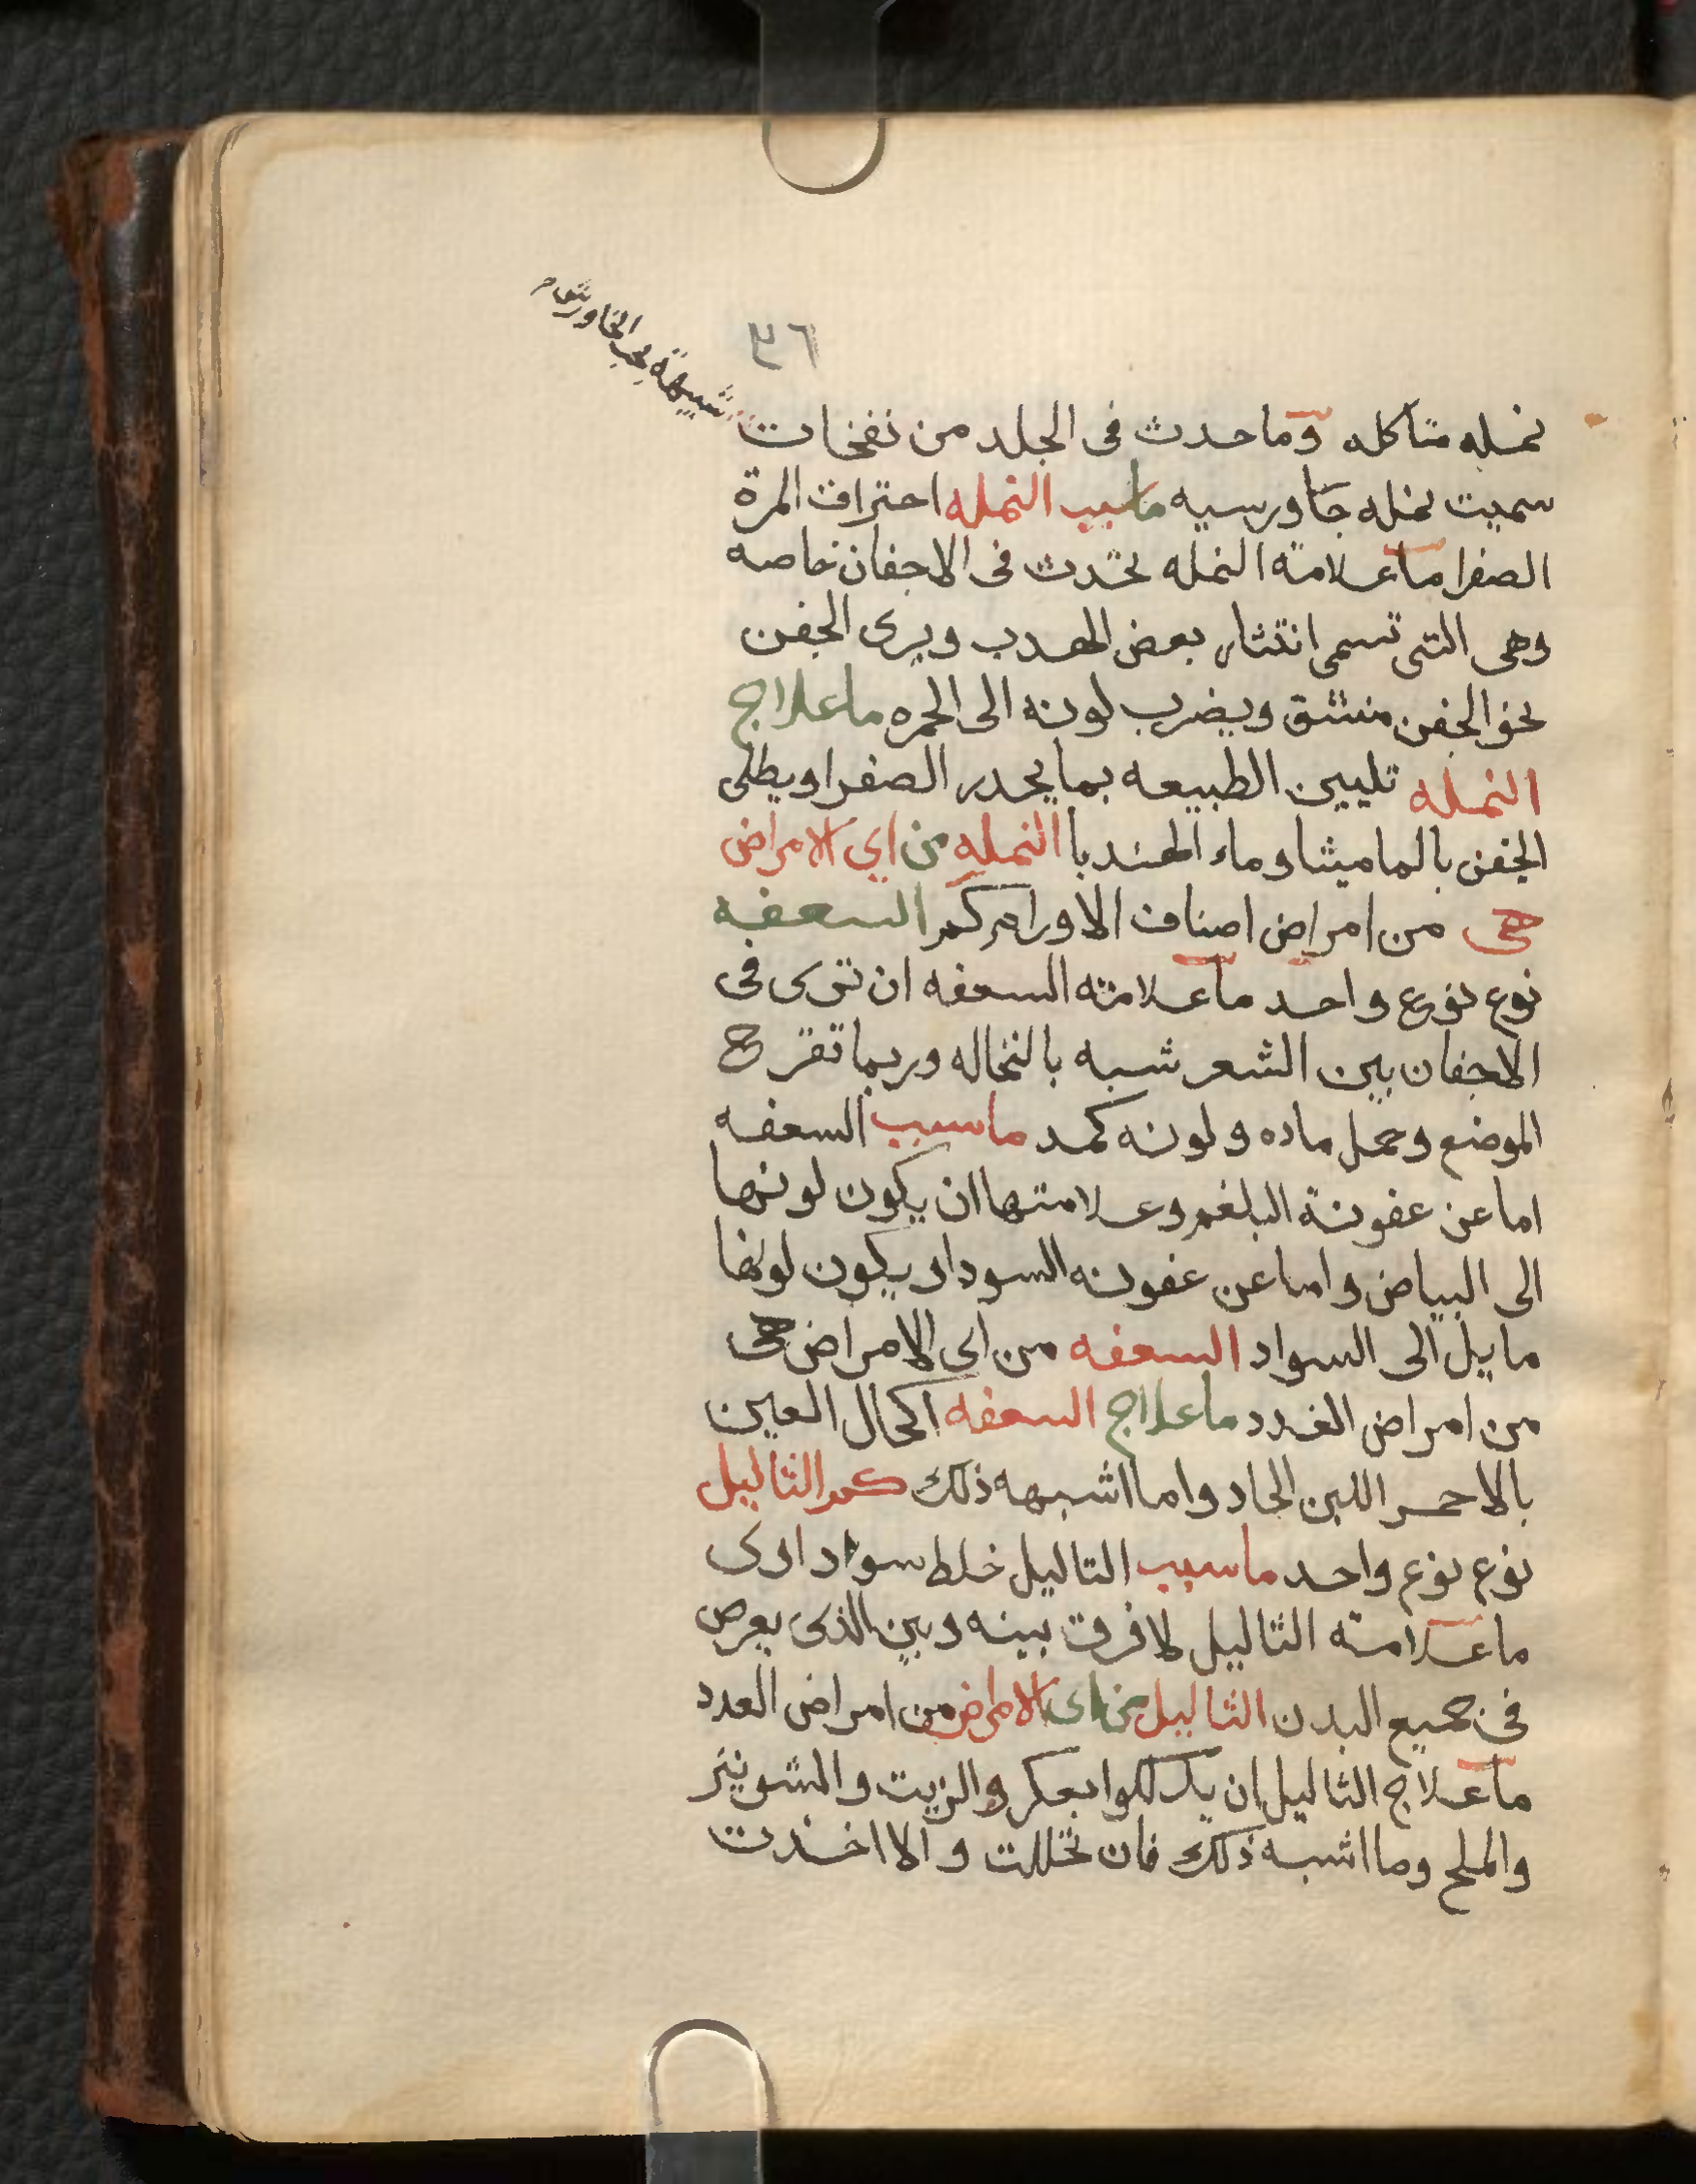 ٣٦
شبيهة بحب الجاورش
نمله متاكله وما حدث فى الجلد من نفخات
سميت نمله جاورسيه ماسبب النمله احتراق المرة
الصفرا ما علامة النمله تحدث فى الاجفان خاصه
وهى التى تسمى انتثار بعض الهدب ويرى الجفن
نحو الجفن منشق ويضرب لونه الى الحمره ما علاج
النمله تليين الطبيعه بما يحدر الصفرا ويطلى
الجفن بالماميثا وماء الهندبا النمله من اي الامراض
هى من امراض اصناف الاورام كم السعفه
نوع نوع واحد ما علامته السعفه ان ترى فى
الاجفان بين الشعر شبه بالنخاله وربما تقرح
الموضع وحمل ماده ولونه كمد ماسبب السعفه
اما عن عفونة البلغم وعلامتها ان يكون لونها
الى البياض واما عن عفونه السودا ويكون لونها
مايل الى السواد السعفه من اى الامراض هى
من امراض الغدد ما علاج السعفه اكحال العين
بالاحمر اللين الحاد واما اشبهه ذلك كم الثاليل
نوع نوع واحد ماسبب الثاليل خلط سواداوى
ما علامته الثاليل لا فرق بينه وبين الذى يعرض
فى جميع البدن الثاليل من اى الامراض من امراض العدد
ما علاج الثاليل ان يدلكوا بعكر والزيت والشونيز
والملح وما اشبه ذلك فان تحللت والا اخذت